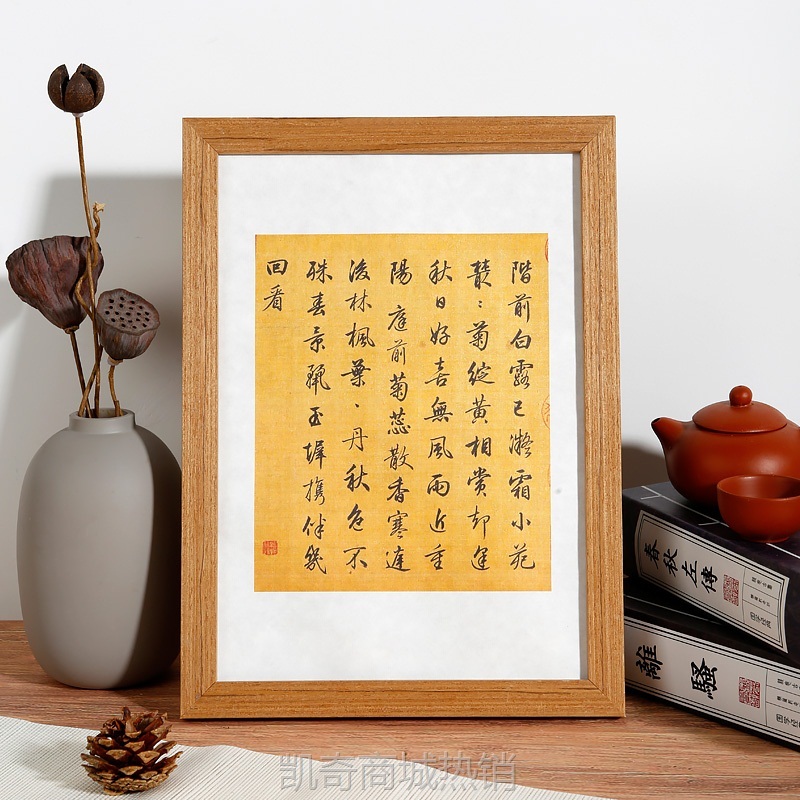 階前白露已凝霜小苑
叢〻菊綻黃相賞却逢
秋日好喜無風雨近重
陽 庭前菊蕊散香寒連
後林楓葉、丹秋色不
殊春景麗玉墀携伴幾
回看
春秋左傳
離騷
凯奇商城热销